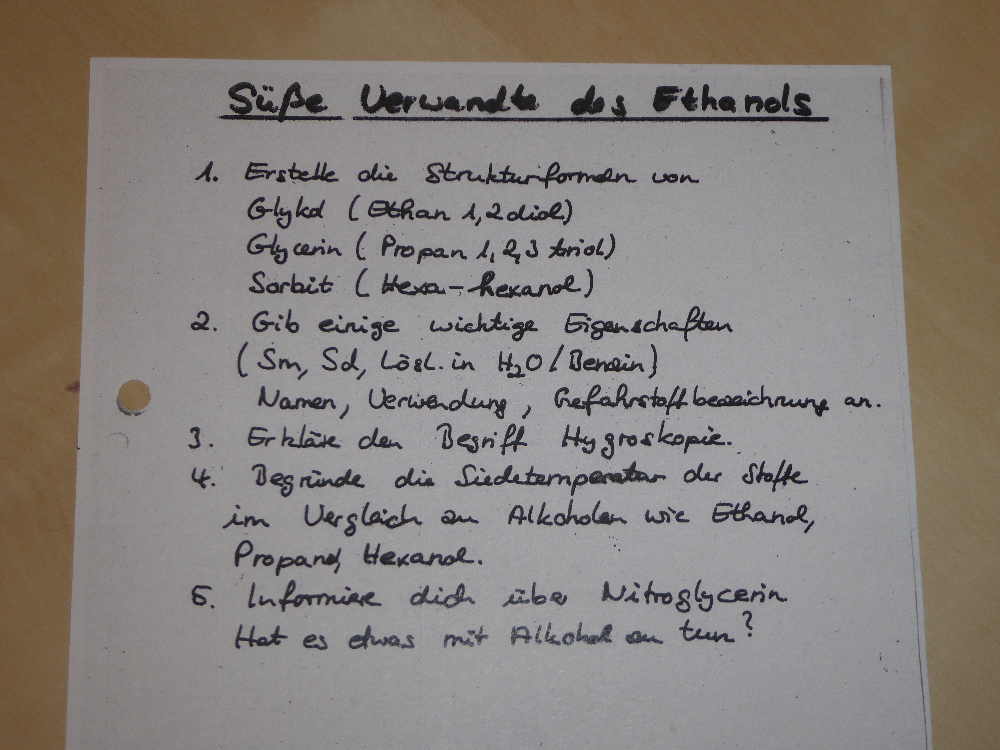 Süße Verwandte des Ethanols
1. Erstelle die Strukturformeln von
Glykol (Ethan 1,2 diol)
Glycerin (Propan 1,2,3 triol)
Sorbit (Hexa-hexanol)
2. Gib einige wichtige Eigenschaften
(Sm, Sd, Lösl. in H₂O/Benzin)
Namen, Verwendung, Gefahrstoffbezeichnung an.
3. Erkläre den Begriff Hygroskopie.
4. Begründe die Siedetemperatur der Stoffe
im Vergleich zu Alkoholen wie Ethanol,
Propanol, Hexanol.
5. Informiere dich über Nitroglycerin
Hat es etwas mit Alkohol zu tun?